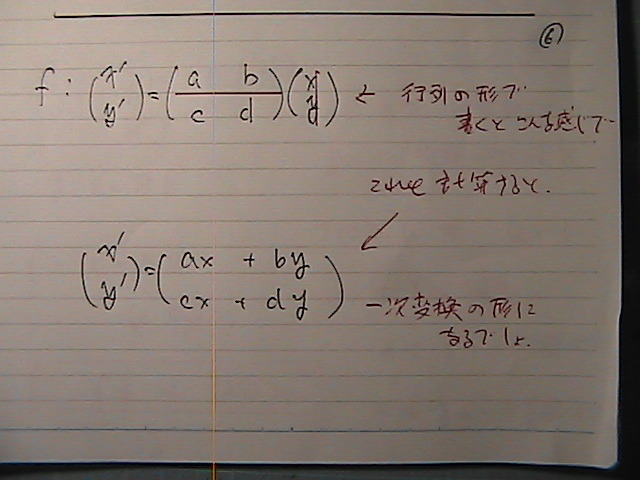 ⑥
f : (x' y') = (a b c d)(x y) ← 行列の形で
書くとこんな感じで
これを計算すると.
(x' y') = (ax + by cx + dy)
一次変換の形に
なるでしょ.